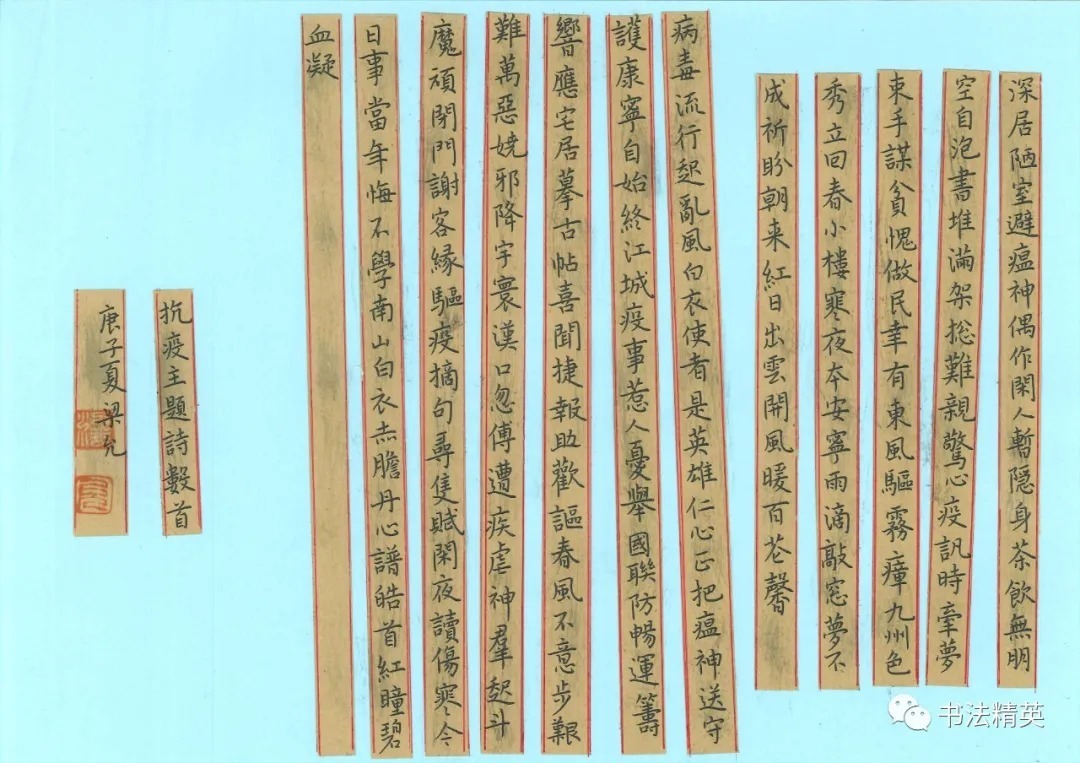 深居陋室避瘟神偶作閑人暫隱身茶飲無朋
空自泡書堆滿架總難親驚心疫訊時牽夢
束手謀貧愧做民幸有東風驅霧瘴九州色
秀立回春小樓寒夜本安寧雨滴敲窓夢不
成祈盼朝来紅日出雲開風暖百花馨
病毒流行起亂風白衣使者是英雄仁心正把瘟神送守
護康寧自始終江城疫事惹人憂舉國聯防暢運籌
響應宅居摹古帖喜聞捷報助歡謳春風不意步艱
難萬惡嬈邪降宇寰漢口忽傳遭疾虐神羣起斗
魔頑閉門謝客緣驅疫摘句尋隻賦閑夜讀傷寒令
日事當年悔不學南山白衣赤膽丹心譜皓首紅瞳碧
血凝
抗疫主題詩數首
庚子夏梁允
书法精英